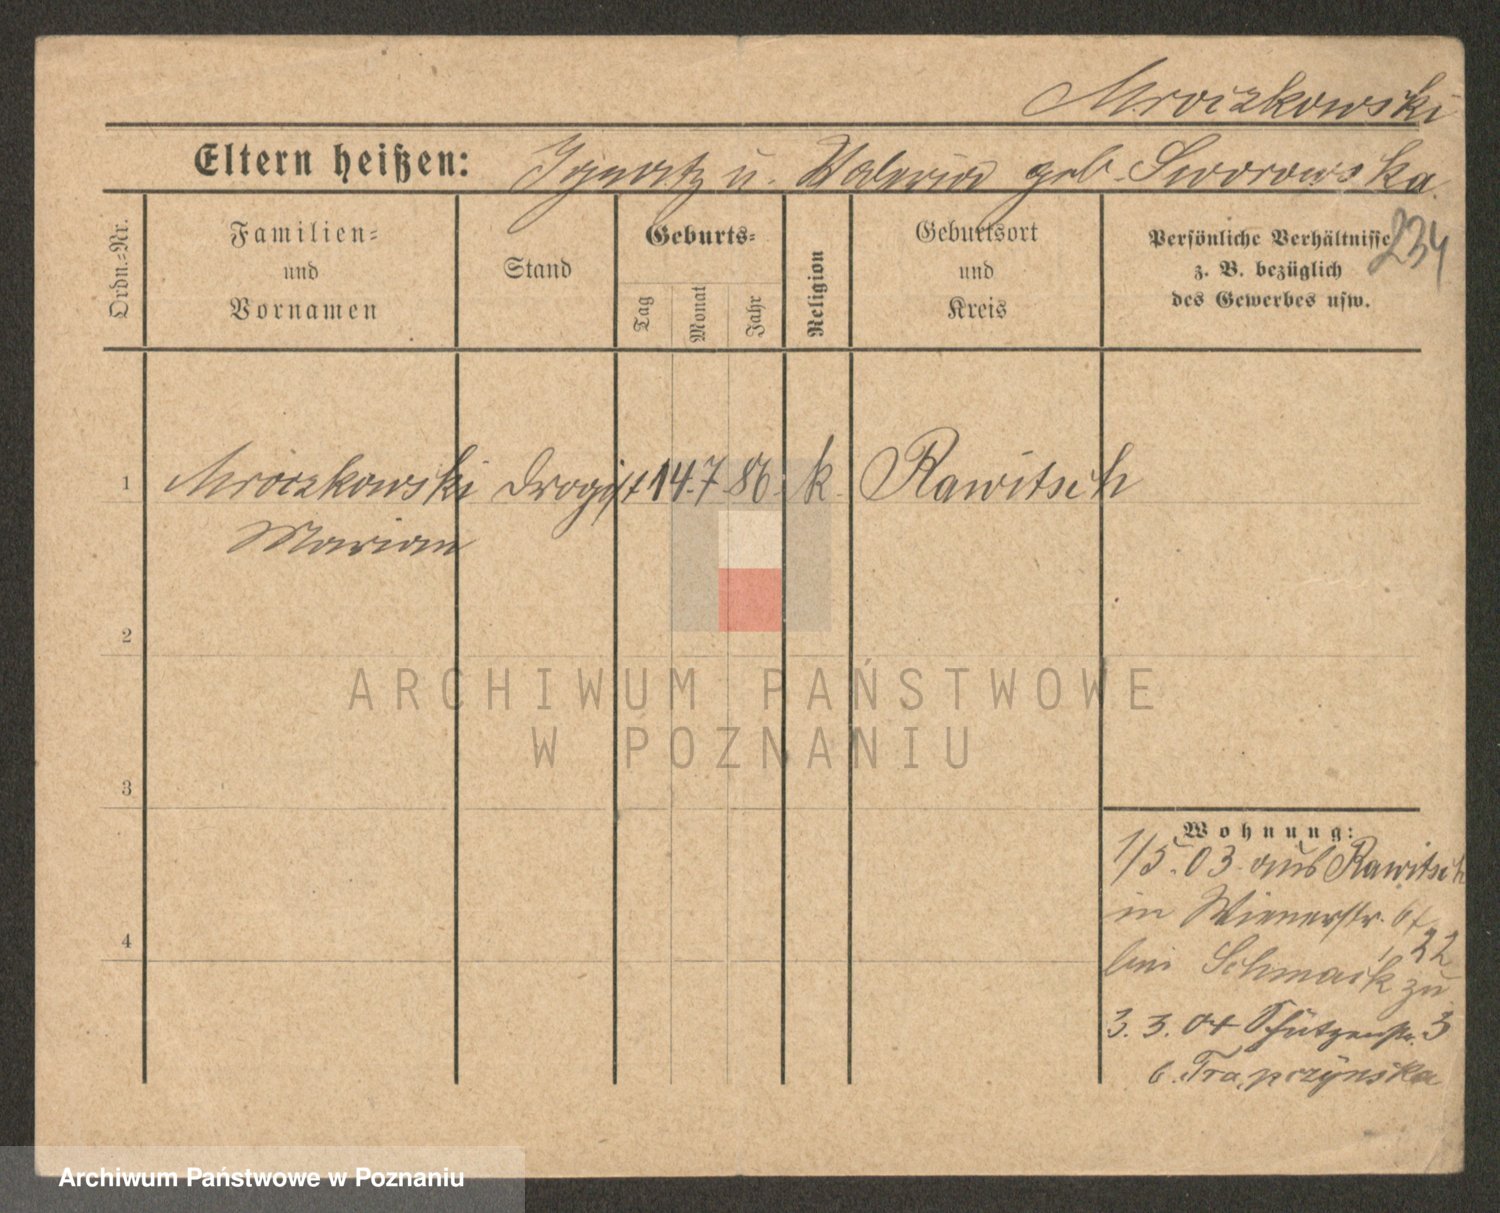 Mroczkowski
Eltern heißen: Ignatz u. Valeria geb. Sworowska
234
Ordn.-Nr.
Familien-
und
Vornamen
Stand
Geburts-
Tag
Monat
Jahr
Religion
Geburtsort
und
Kreis
Persönliche Verhältnisse
z. B. bezüglich
des Gewerbes usw.
1 Mroczkowski Drogist 14. 7. 86. k. Rawitsch
Marian
2
ARCHIWUM PAŃSTWOWE
W POZNANIU
3
4
Wohnung:
1/5. 03. aus Rawitsch
in Wienerstr.
22
bei Schmack zu
3. 3. 04 Schützenstr. 3
b. Trąpczyńska
Archiwum Państwowe w Poznaniu